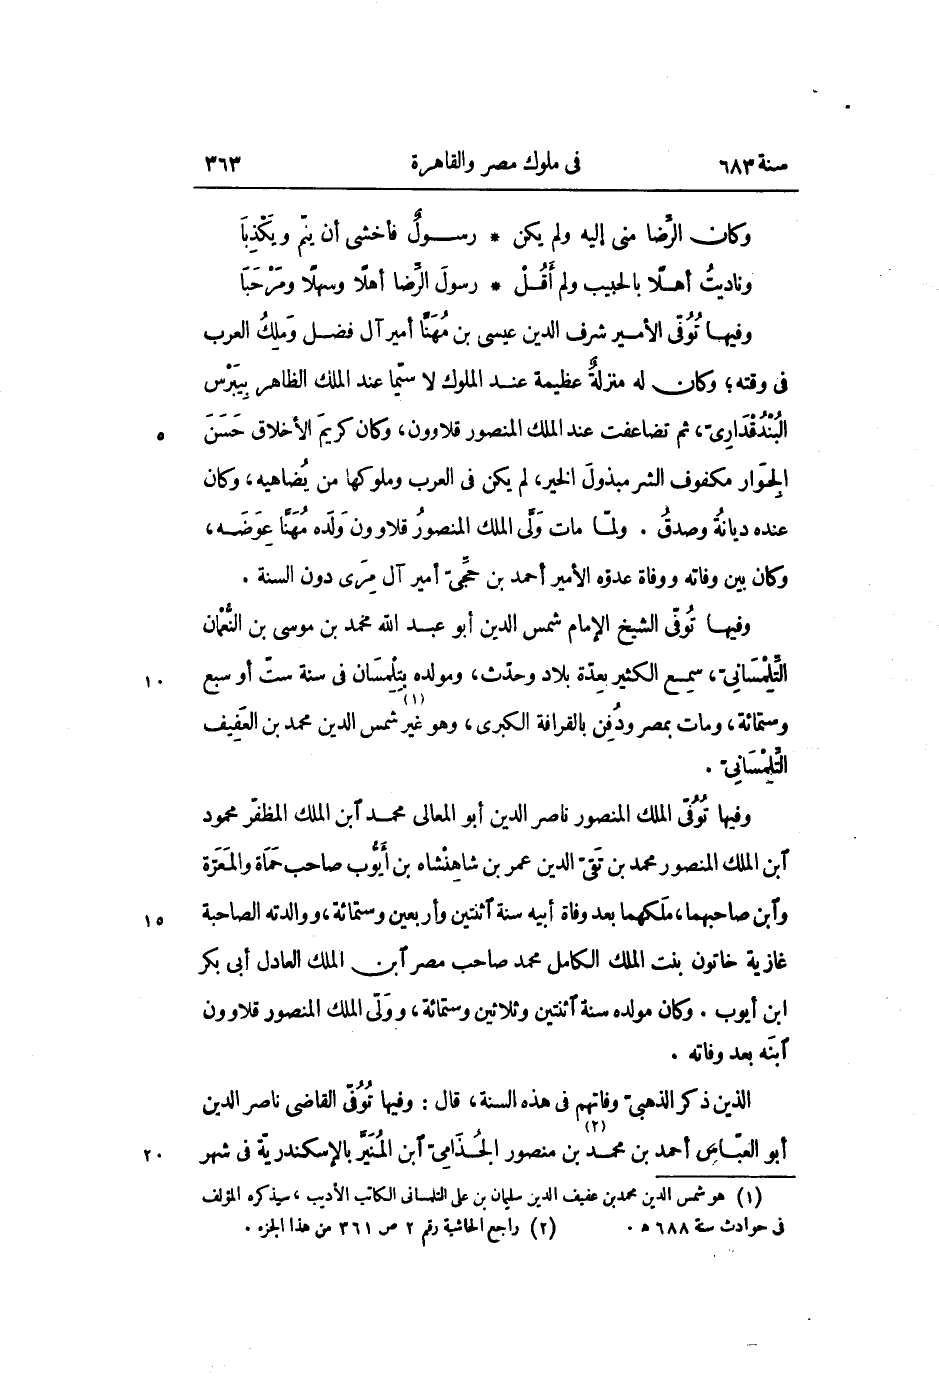 سنة ٦٨٣ فى ملوك مصر والقاهرة ٣٦٣
وكان الرِّضا منى إليه ولم يكن * رسولٌ فأخشى أن ينمّ ويَكْذِبَا
وناديتُ أهلًا بالحبيب ولم أَقُلْ * رسولَ الرِّضا أهلًا وسهلًا ومَرْحَبَا
وفيها تُوُفّى الأمير شرف الدين عيسى بن مُهَنَّا أمير آل فضل ومَلِكُ العرب
فى وقته؛ وكان له منزلةٌ عظيمة عند الملوك لا سيّما عند الملك الظاهر بِيبَرْس
البُنْدُقْدَارِىّ، ثم تضاعفت عند الملك المنصور قلاوون، وكان كريمَ الأخلاق حَسَنَ ٥
الجِوَار مكفوف الشر مبذولَ الخير، لم يكن فى العرب وملوكها من يُضاهيه، وكان
عنده ديانةٌ وصدقٌ . ولمّا مات وَلَّى الملك المنصورُ قلاوون وَلَده مُهَنَّا عِوَضَه،
وكان بين وفاته ووفاة عدوّه الأمير أحمد بن حِجِّىّ أمير آل مِرَى دون السنة .
وفيها تُوُفّى الشيخ الإمام شمس الدين أبو عبد الله محمد بن موسى بن النُّعْمان
التِّلِمْسَانِىّ، سمِع الكثير بعِدّة بلاد وحدّث، ومولده بِتِلْمِسَان فى سنة ستّ أو سبع ١٠
وستمائة، ومات بمصر ودُفِن بالقرافة الكبرى، وهو غير شمس الدين محمد بن العَفِيف (١)
التِّلِمْسَانِىّ .
وفيها تُوُفّى الملك المنصور ناصر الدين أبو المعالى محمد آبن الملك المظفّر محمود
آبن الملك المنصور محمد بن تَقِىّ الدين عمر بن شاهِنْشاه بن أَيُّوب صاحب حَمَاة والمَعَرّة
وآبن صاحبهما، مَلَكهما بعد وفاة أبيه سنة آثنتين وأربعين وستمائة، ووالدته الصاحبة ١٥
غازية خاتون بنت الملك الكامل محمد صاحب مصر آبن الملك العادل أبى بكر
ابن أيوب . وكان مولده سنة آثنتين وثلاثين وستمائة، وولّى الملك المنصور قلاوون
آبنَه بعد وفاته .
الذين ذكر الذهبىّ وفاتهم فى هذه السنة، قال : وفيها تُوُفّى القاضى ناصر الدين
أبو العبّاس أحمد بن محمد بن منصور الجُذَامِىّ آبن المُنَيَّر (٢) بالإسكندريّة فى شهر ٢٠
(١) هو شمس الدين محمد بن عفيف الدين سليمان بن على التلمسانى الكاتب الأديب، سيذكره المؤلف
فى حوادث سنة ٦٨٨ ه . (٢) راجع الحاشية رقم ٢ ص ٣٦١ من هذا الجزء .